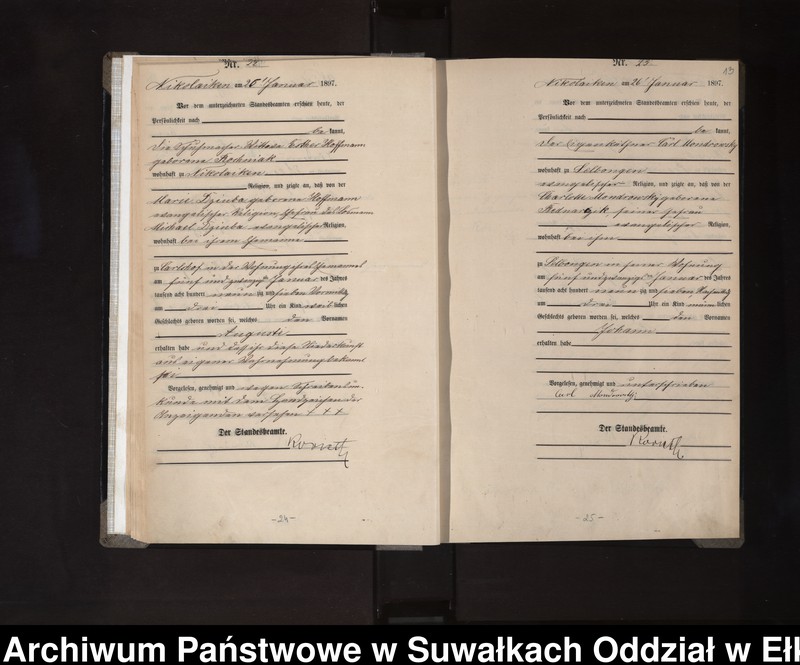 Nr. 22
Nikolaiken am 26ten Januar 1897.
Vor dem unterzeichneten Standesbeamten erschien heute, der
Persönlichkeit nach
be kannt,
die Schuhmacher Wittwe Esther Hoffmann
geborene
wohnhaft zu Nikolaiken
Religion, und zeigte an, daß von der
Marie geborene Hoffmann
evangelischer Religion, Ehefrau des
Michael evangelischer Religion,
wohnhaft bei ihrem Ehemanne
zu Carlshof in der Wohnung ihres Ehemannes
am fünf und zwanzigsten Januar des Jahres
tausend acht hundert neunzig und sieben Vormittags
um drei Uhr ein Kind weiblichen
Geschlechts geboren worden sei, welches den Vornamen
Auguste
erhalten habe und daß ihr diese Niederkunft
aus eigener Wahrnehmung bekannt
sei
Vorgelesen, genehmigt und wegen Schreibensun-
kunde mit dem Handzeichen der
Anzeigenden versehen + + +
Der Standesbeamte.
- 24 -
Nr. 23
13
Nikolaiken am 26ten Januar 1897.
Vor dem unterzeichneten Standesbeamten erschien heute, der
Persönlichkeit nach
be kannt,
der Eigenkäthner Carl Mondrowsky
wohnhaft zu Selbongen
evangelischer Religion, und zeigte an, daß von der
Charlotte Mondrowsky geborene
Bednarzik seiner Ehefrau
evangelischer Religion,
wohnhaft bei ihm
zu Selbongen in seiner Wohnung
am fünf und zwanzigsten Januar des Jahres
tausend acht hundert neunzig und sieben
um drei Uhr ein Kind männlichen
Geschlechts geboren worden sei, welches den Vornamen
Johann
erhalten habe
Vorgelesen, genehmigt und unterschrieben
Carl
Der Standesbeamte.
- 25 -
Archiwum Państwowe w Suwałkach Oddział w Ełk